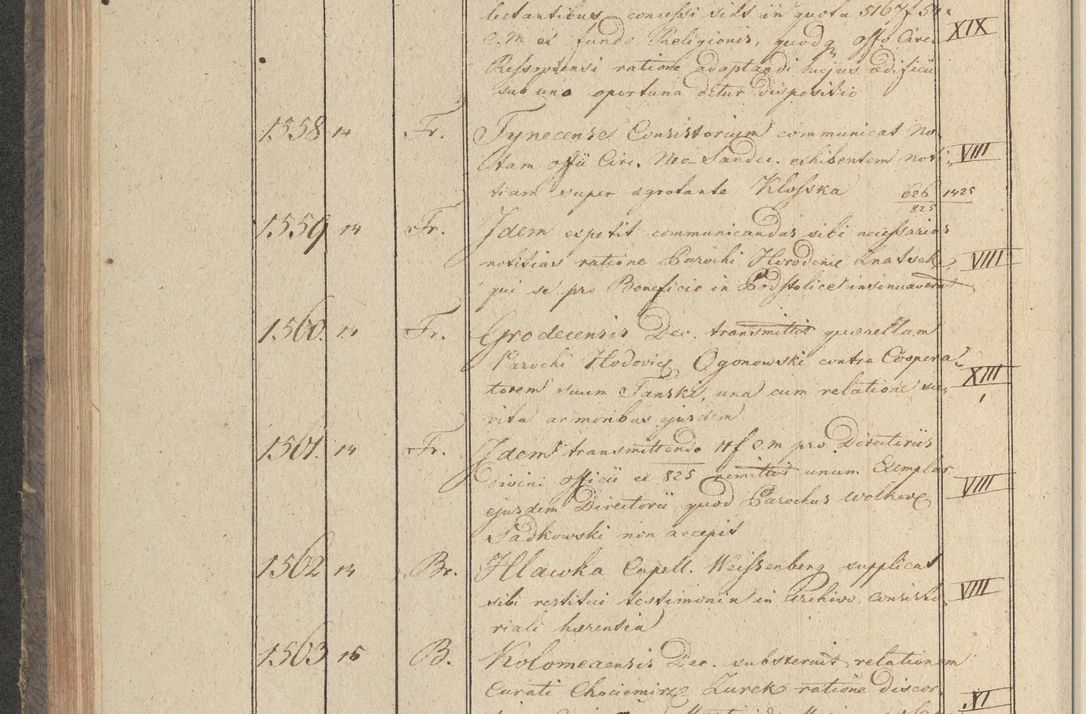 lectantibus concessi sint in quota 5167 f 54
C.M. ex fundo Religionis, quodq offo Circ. XIX
Ressoviensi ratione adaptandi hujus ædificii
sub uno oportuna detur dispositio
1558 14 Fr. Tynecense Consistorium communicat No-
tam offii Circ. Neo-Sandec. exhibentem noti- VIII
tiam super ægrotante Klosska 626/825 1425
1559 14 Fr. Idem expetit communicandas sibi necessarias
notitias ratione Parochi Herodenie VIIII
qui se pro Beneficio in insinuaverat
1560. 14 Fr. Grodecensis Dec. transmittit quærellam
Parochi Hodovice Ogonowski contra Coopera-
torem suum Tanski, una cum relatione su- XIII
vita ac moribus ejusdem
1561. 14 Fr. Idem transmittendo 17 f C M pro Directoriis
divini officii ex 825 remittit unum Exemplar VIII
ejusdem Directorii quod Parochus Wolkove
Sadkowski non accepit
1562 14 Br. Hlawka Capell. Weissenberg supplicat
sibi restitui testimonia in Archivo consisto- VIIII
riali hærentia
1563 15 B. Kolomeaensis Dec. substernit relationem
Curati Chociemirz Zurek ratione discor- XI